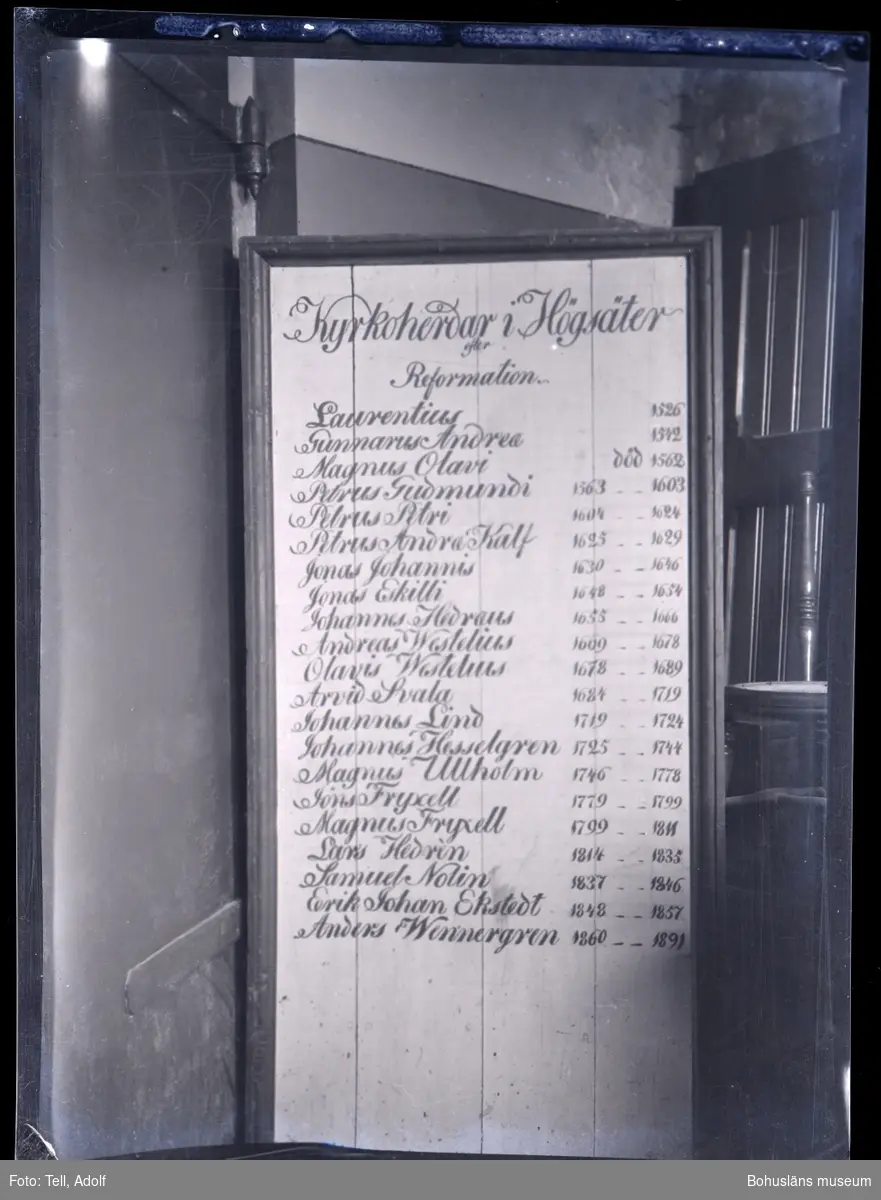 Kyrkoherdar i Högsäter
efter
Reformation.
Laurentius 1526
Gunnarus Andreæ 1542
Magnus Olavi död 1562
Petrus Gudmundi 1563 _ _ 1603
Petrus Petri 1604 _ _ 1624
Petrus Andræ Kalf 1625 _ _ 1629
Jonas Johannis 1630 _ _ 1646
Jonas Eskilli 1648 _ _ 1654
Johannes Hedræus 1655 _ _ 1666
Andreas Westelius 1669 _ _ 1678
Olavis Westelius 1678 _ _ 1689
Arvid Svala 1684 _ _ 1719
Johannes Lind 1719 _ _ 1724
Johannes Hesselgren 1725 _ _ 1744
Magnus Ullholm 1746 _ _ 1778
Jöns Fryxell 1779 _ _ 1799
Magnus Fryxell 1799 _ _ 1811
Lars Hedrén 1814 _ _ 1835
Samuel Nolin 1837 _ _ 1846
Erik Johan Ekstedt 1848 _ _ 1857
Anders Wennergren 1860 _ _ 1891
Foto: Tell, Adolf
Bohusläns museum